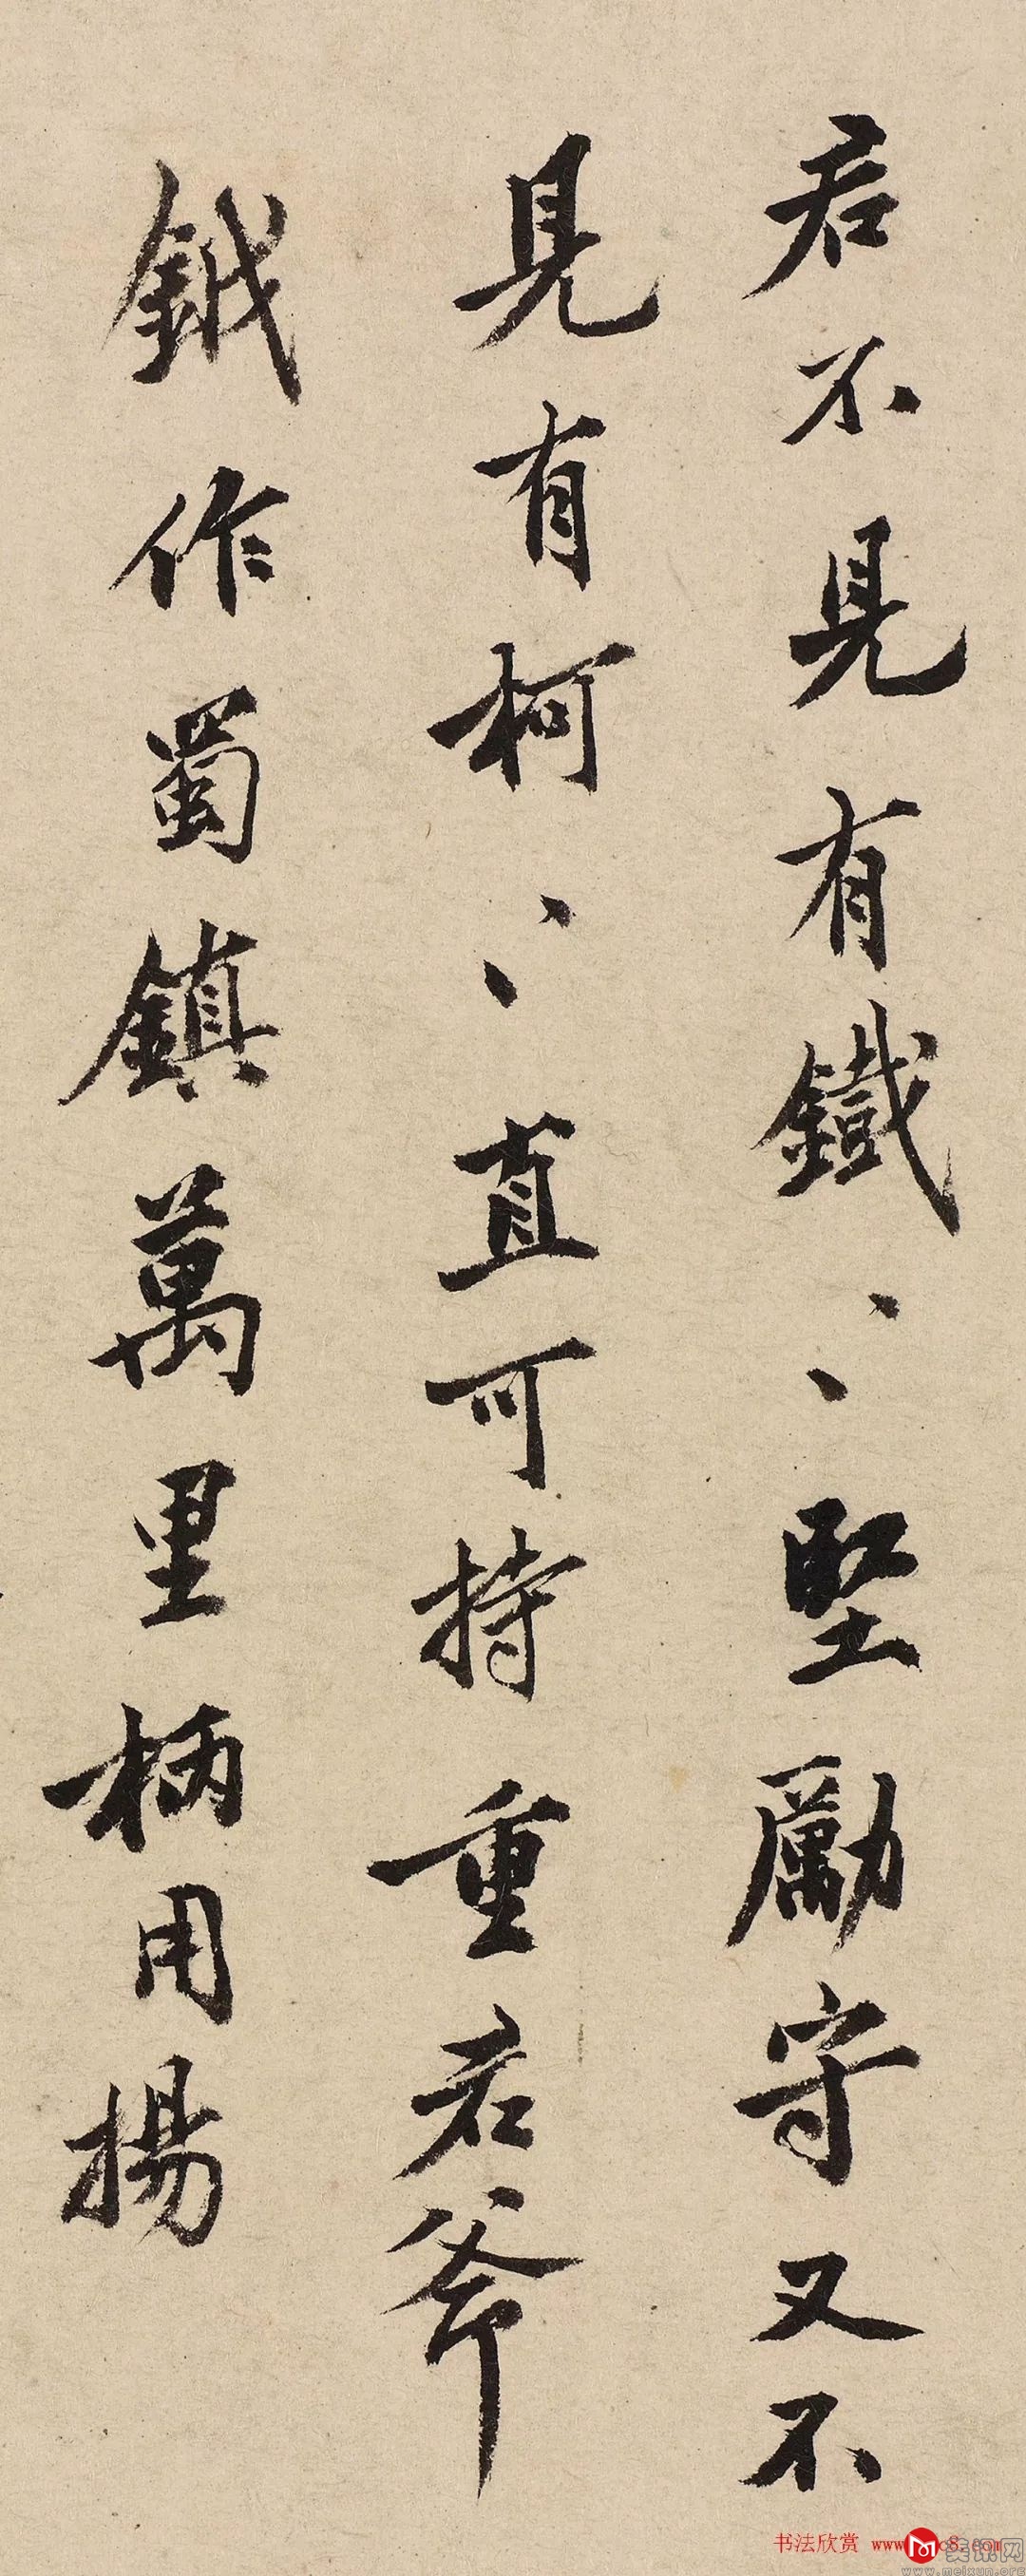 君不見有鐵〻堅勵守又不
見有柯〻直可持重君斧
鉞作蜀鎮萬里柄用揚
书法欣赏 www.
8.com
美讯网
www.meixun.org